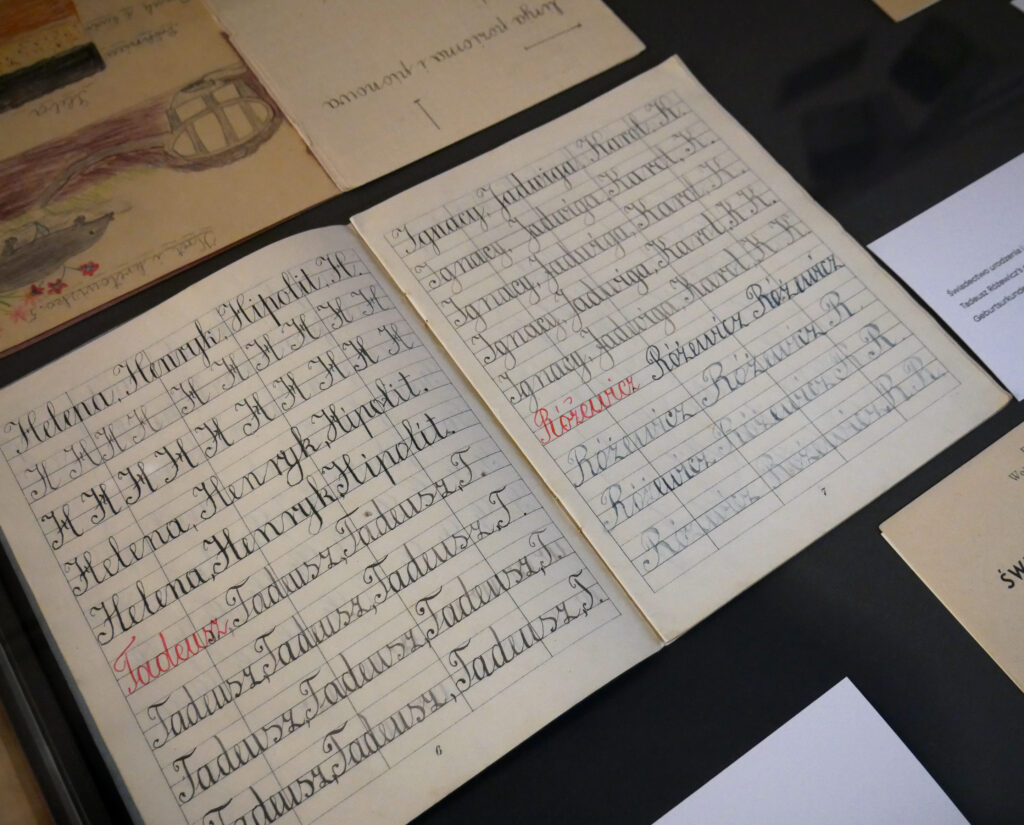 linja pozioma i pionowa
Helena, Henryk, Hipolit. H.
H H H H H H H H H H
H H H H H H H H H H
Helena, Henryk, Hipolit.
Helena, Henryk, Hipolit.
Tadeusz, Tadeusz, Tadeusz, T.
Tadeusz, Tadeusz, Tadeusz, T.
Tadeusz, Tadeusz, Tadeusz, T.
Tadeusz, Tadeusz, Tadeusz, T.
6
Ignacy, Jadwiga, Karol, K.
Ignacy, Jadwiga, Karol, K.
Ignacy, Jadwiga, Karol, K.
Ignacy, Jadwiga, Karol, K K.
Ignacy, Jadwiga, Karol, K K
Różewicz Różewicz Różewicz
Różewicz Różewicz R
Różewicz Różewicz R R.
Różewicz Różewicz, R. R.
7
Świadectwo urodzenia
Tadeusz Różewicz's
Geburtsurkunde